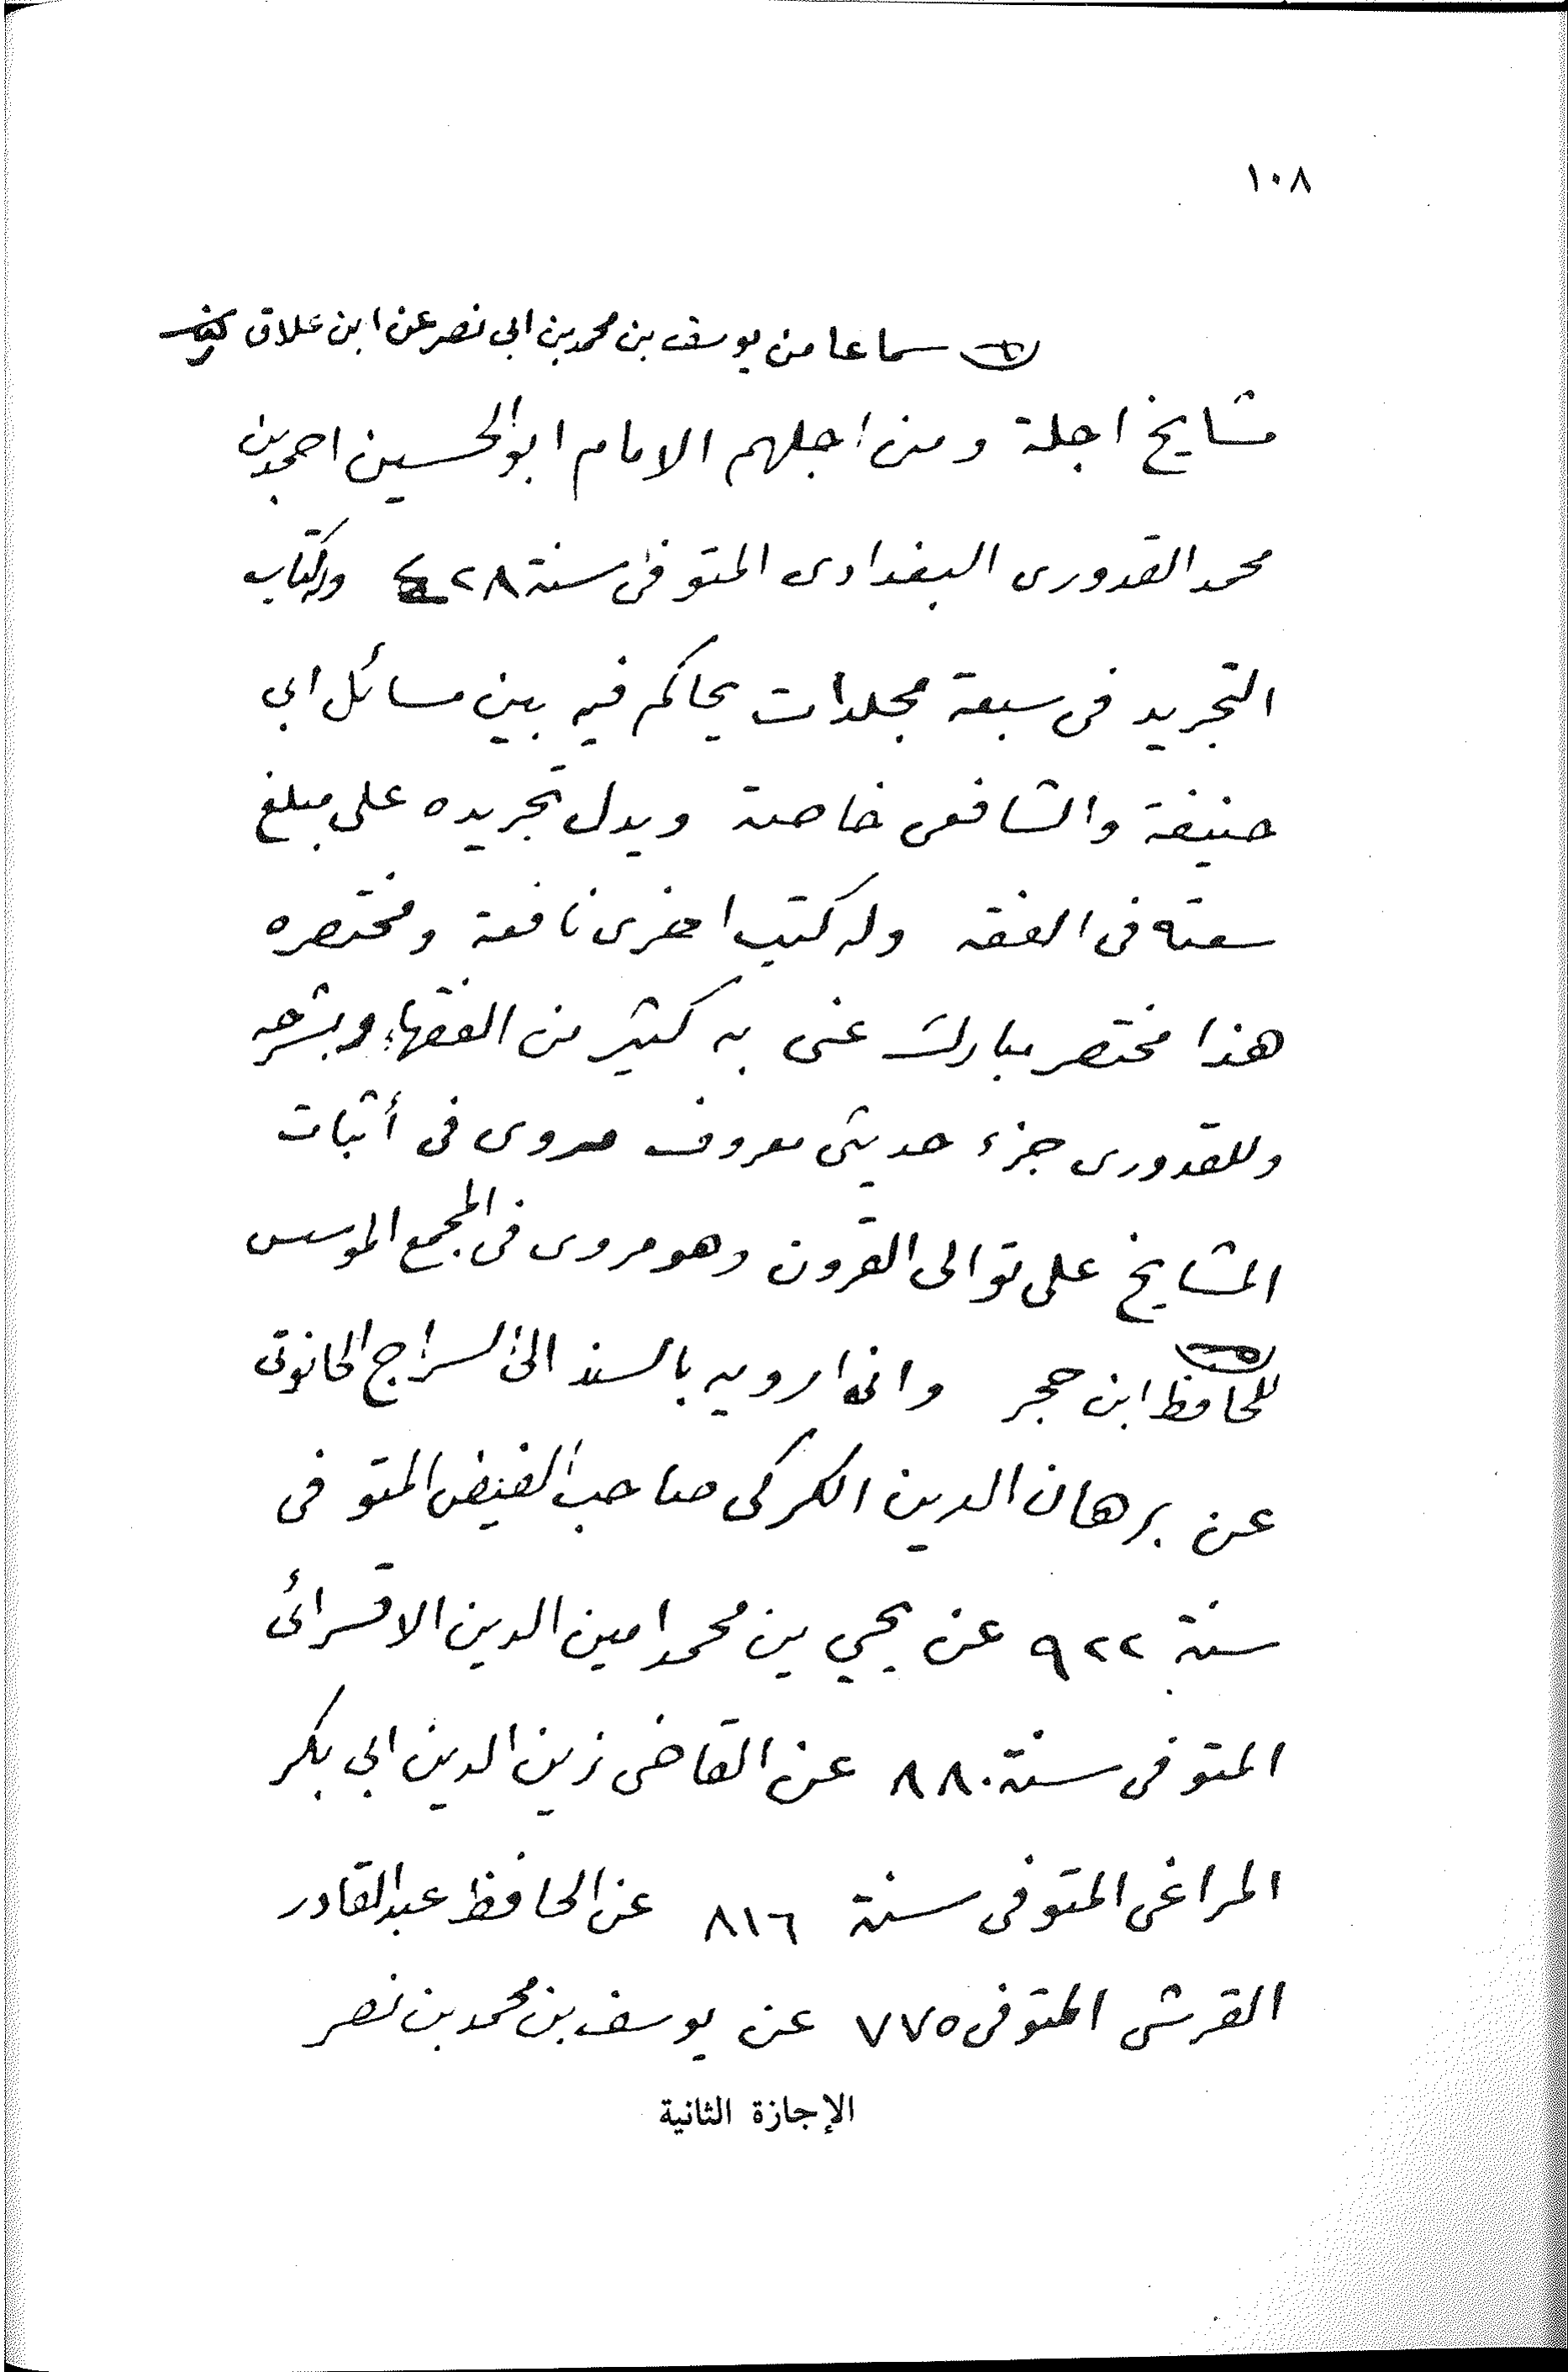 ١٠٨
سماعا من يوسف بن محمد بن ابى نصر عن ابن علاق
مشايخ اجلة ومن اجلهم الامام ابو الحسين احمد بن
محمد القدورى البغدادى المتوفى سنة ٤٢٨ وله كتاب
التجريد فى سبعة مجلدات يحاكم فيه بين مسائل ابى
حنيفة والشافعى خاصة ويدل تجريده على مبلغ
سعته فى الفقه وله كتب اخرى نافعة ومختصره
هذا مختصر مبارك عنى به كثير من الفقهاء وبشرحه
وللقدورى جزء حديثى معروف مروى فى أثبات
المشايخ على توالى القرون وهو مروى فى المجمع الموسس
للحافظ ابن حجر وانى ارويه بالسند الى السراج الحانوتى
عن برهان الدين الكركى صاحب الفيض المتوفى
سنة ٩٢٢ عن يحيي بن محمد امين الدين الاقسرائى
المتوفى سنة ٨٨٠ عن القاضى زين الدين ابى بكر
المراغى المتوفى سنة ٨١٦ عن الحافظ عبد القادر
القرشى المتوفى ٧٧٥ عن يوسف بن محمد بن نصر
الإجازة الثانية